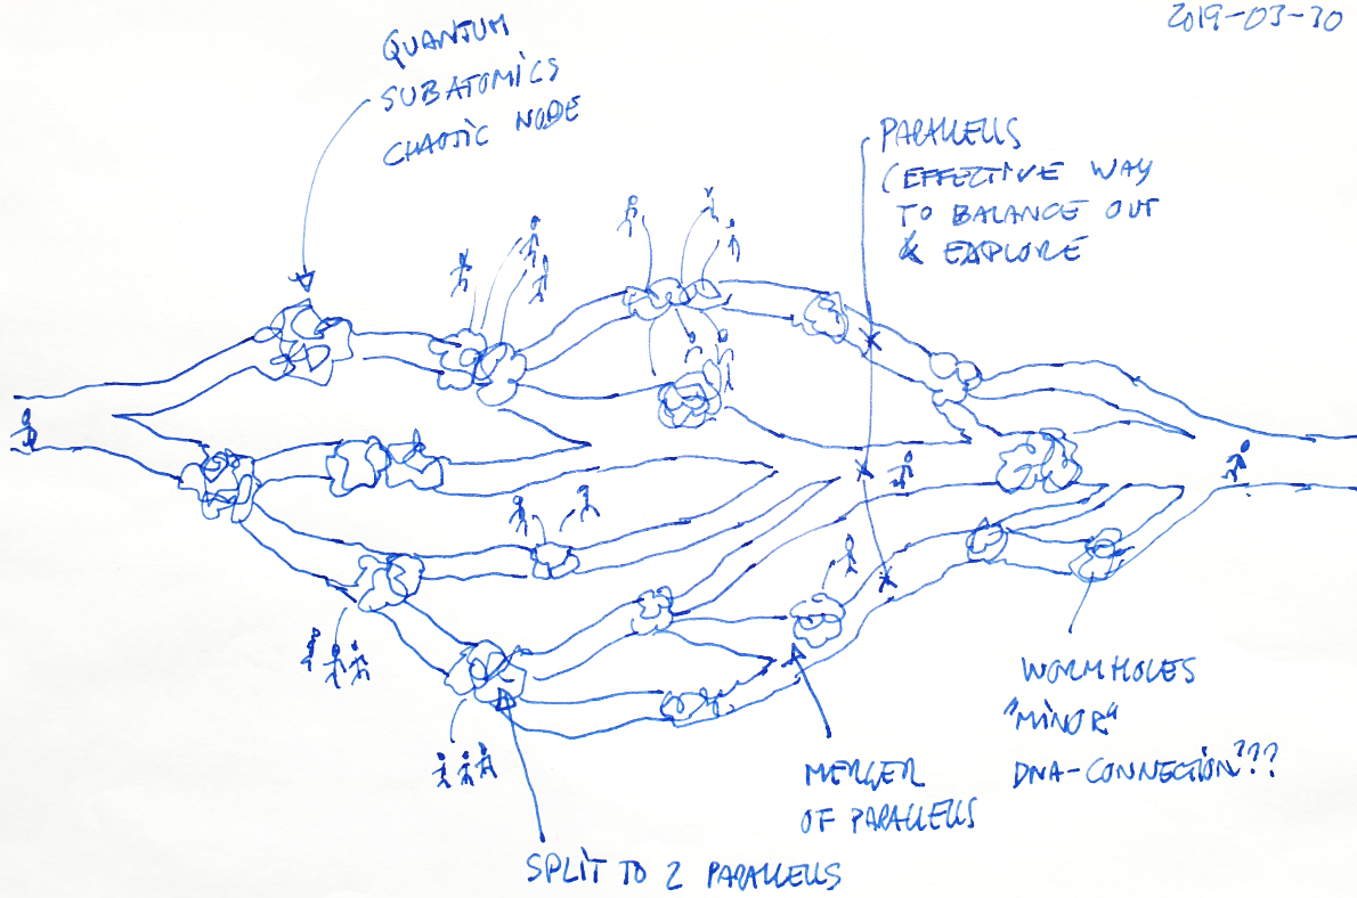 2019-03-30
QUANTUM
SUBATOMICS
CHAOTIC NODE
PARALLELLS
(EFFECTIVE WAY
TO BALANCE OUT
& EXPLORE
WORMHOLES
"MINOR"
DNA-CONNECTION???
MERGER
OF PARALLELLS
SPLIT TO 2 PARALLELLS